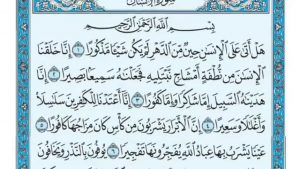 سورة الإنسان
بسم الله الرحمن الرحيم
هَلْ أَتَىٰ عَلَى ٱلْإِنسَٰنِ حِينٌ مِّنَ ٱلدَّهْرِ لَمْ يَكُن شَيْـًٔا مَّذْكُورًا ١ إِنَّا خَلَقْنَا
ٱلْإِنسَٰنَ مِن نُّطْفَةٍ أَمْشَاجٍ نَّبْتَلِيهِ فَجَعَلْنَٰهُ سَمِيعًۢا بَصِيرًا ٢ إِنَّا
هَدَيْنَٰهُ ٱلسَّبِيلَ إِمَّا شَاكِرًا وَإِمَّا كَفُورًا ٣ إِنَّآ أَعْتَدْنَا لِلْكَٰفِرِينَ سَلَٰسِلَا۟
وَأَغْلَٰلًا وَسَعِيرًا ٤ إِنَّ ٱلْأَبْرَارَ يَشْرَبُونَ مِن كَأْسٍ كَانَ مِزَاجُهَا كَافُورًا ٥
عَيْنًا يَشْرَبُ بِهَا عِبَادُ ٱللَّهِ يُفَجِّرُونَهَا تَفْجِيرًا ٦ يُوفُونَ بِٱلنَّذْرِ وَيَخَافُونَ